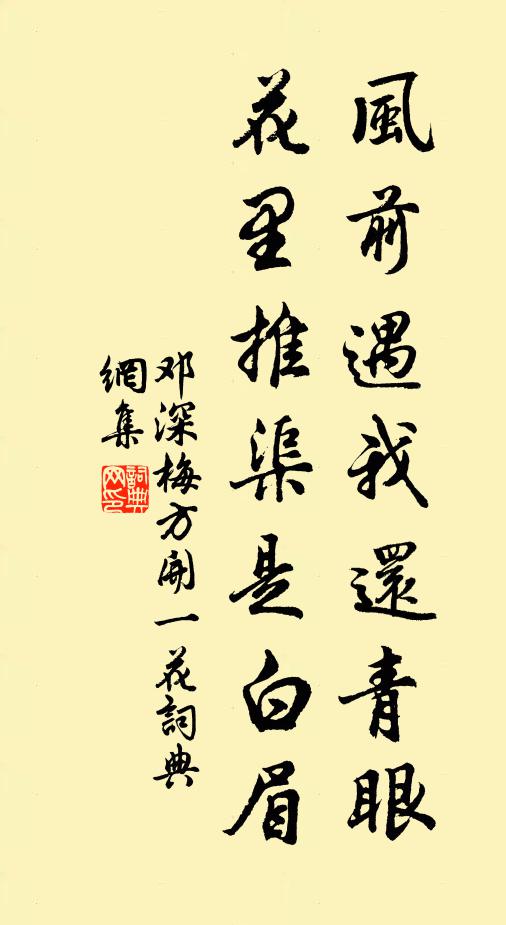 風前遇我還青眼
花里推渠是白眉
邓深梅方開一花詞典
網集
詞典
网印